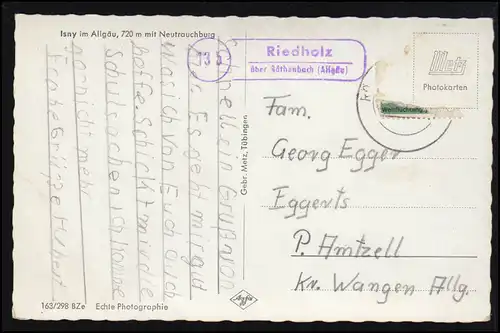 Isny im Allgäu, 720 m mit Neutrauchburg
13b
Riedholz
über Röthenbach (Allgäu)
Metz
Photokarten
Schnell ein Gruß von
hier. Es geht mir gut
was ich von Euch auch
hoffe. Schickt mir die
Schulsachen ich komme
gar nicht mehr
Ende Grüße Hubert
Gebr. Metz, Tübingen
Fam.
Georg Egger
Eggerts
P. Amtzell
Kr. Wangen Allg.
163/298 BZe Echte Photographie
Agfa